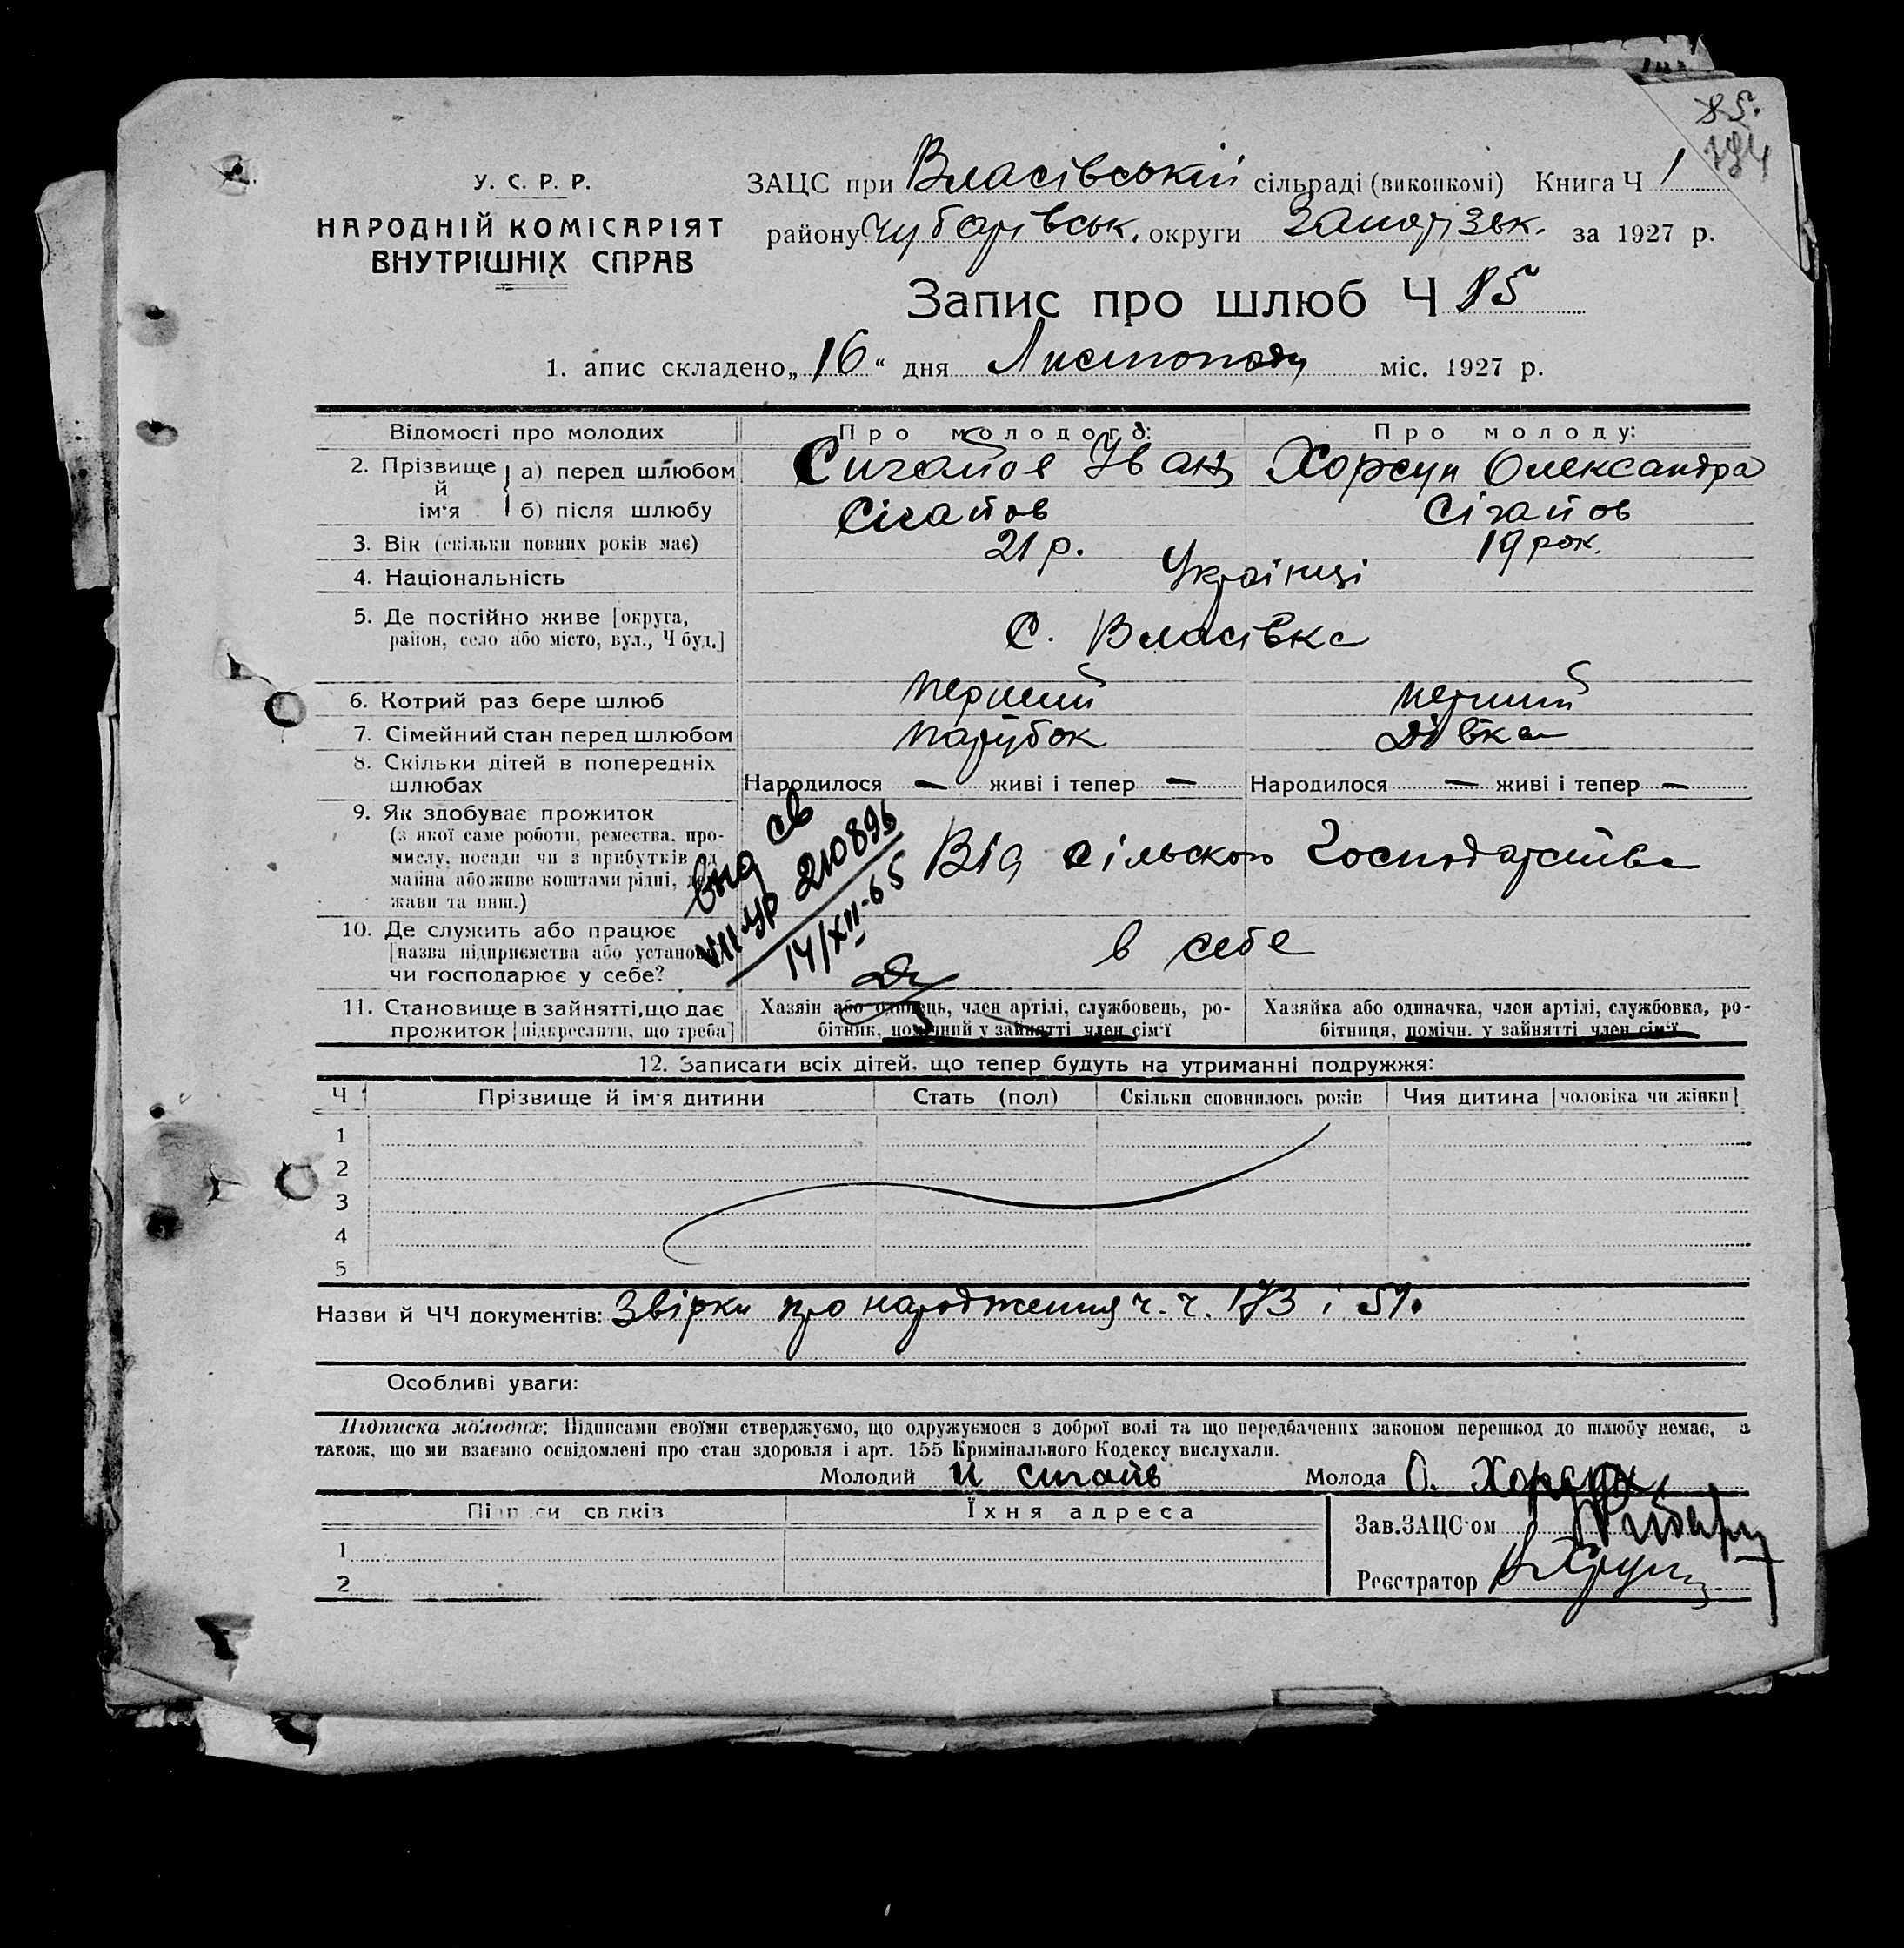 85.
384
У. С. Р. Р.
НАРОДНІЙ КОМІСАРІЯТ
ВНУТРІШНІХ СПРАВ
ЗАЦС при Власівській сільраді (виконкомі) Книга Ч 1
району Чубарівськ. округи Запорізьк. за 1927 р.
Запис про шлюб Ч 85
1. апис складено „16“ дня Листопаду міс. 1927 р.
Відомості про молодих Про молодого: Про молоду:
2. Прізвище й ім'я а) перед шлюбом Сигайов Іван Хорсун Олександра
б) після шлюбу Сігайов Сігайов
3. Вік (скільки повних років має) 21 р. 19 рок.
4. Національність Українці
5. Де постійно живе [округа,
район, село або місто, вул., Ч буд.] С. Власівка
6. Котрий раз бере шлюб перший перший
7. Сімейний стан перед шлюбом парубок дівка
8. Скільки дітей в попередніх
шлюбах Народилося — живі і тепер — Народилося — живі і тепер —
9. Як здобуває прожиток
(з якої саме роботи, ремества, про-
мислу, посади чи з прибутків від
майна або живе коштами рідні, дер-
жави та инш.) Від сільского Господарства
вид св
VII УР 210896
14/XII-65
10. Де служить або працює
[назва підприємства або установи
чи господарює у себе? в себе
11. Становище в зайнятті, що дає
прожиток [підкреслити, що треба]
Хазяїн або одинець, член артілі, службовець, ро-
бітник, помічний у зайнятті член сім'ї
Хазяйка або одиначка, член артілі, службовка, ро-
бітниця, помічн. у зайнятті член сім'ї
12. Записати всіх дітей, що тепер будуть на утриманні подружжя:
Ч Прізвище й ім'я дитини Стать (пол) Скільки сповнилось років Чия дитина [чоловіка чи жінки]
1
2
3
4
5
Назви й ЧЧ документів: Звірки про народження ч. ч. 173 і 51.
Особливі уваги:
Підписка молодих: Підписами своїми стверджуємо, що одружуємося з доброї волі та що передбачених законом перешкод до шлюбу немає, а
також, що ми взаємно освідомлені про стан здоровля і арт. 155 Кримінального Кодексу вислухали.
Молодий И Сигайв Молода О. Хорсун
Підписи свідків Їхня адреса
1
2
Зав. ЗАЦС'ом
Реєстратор